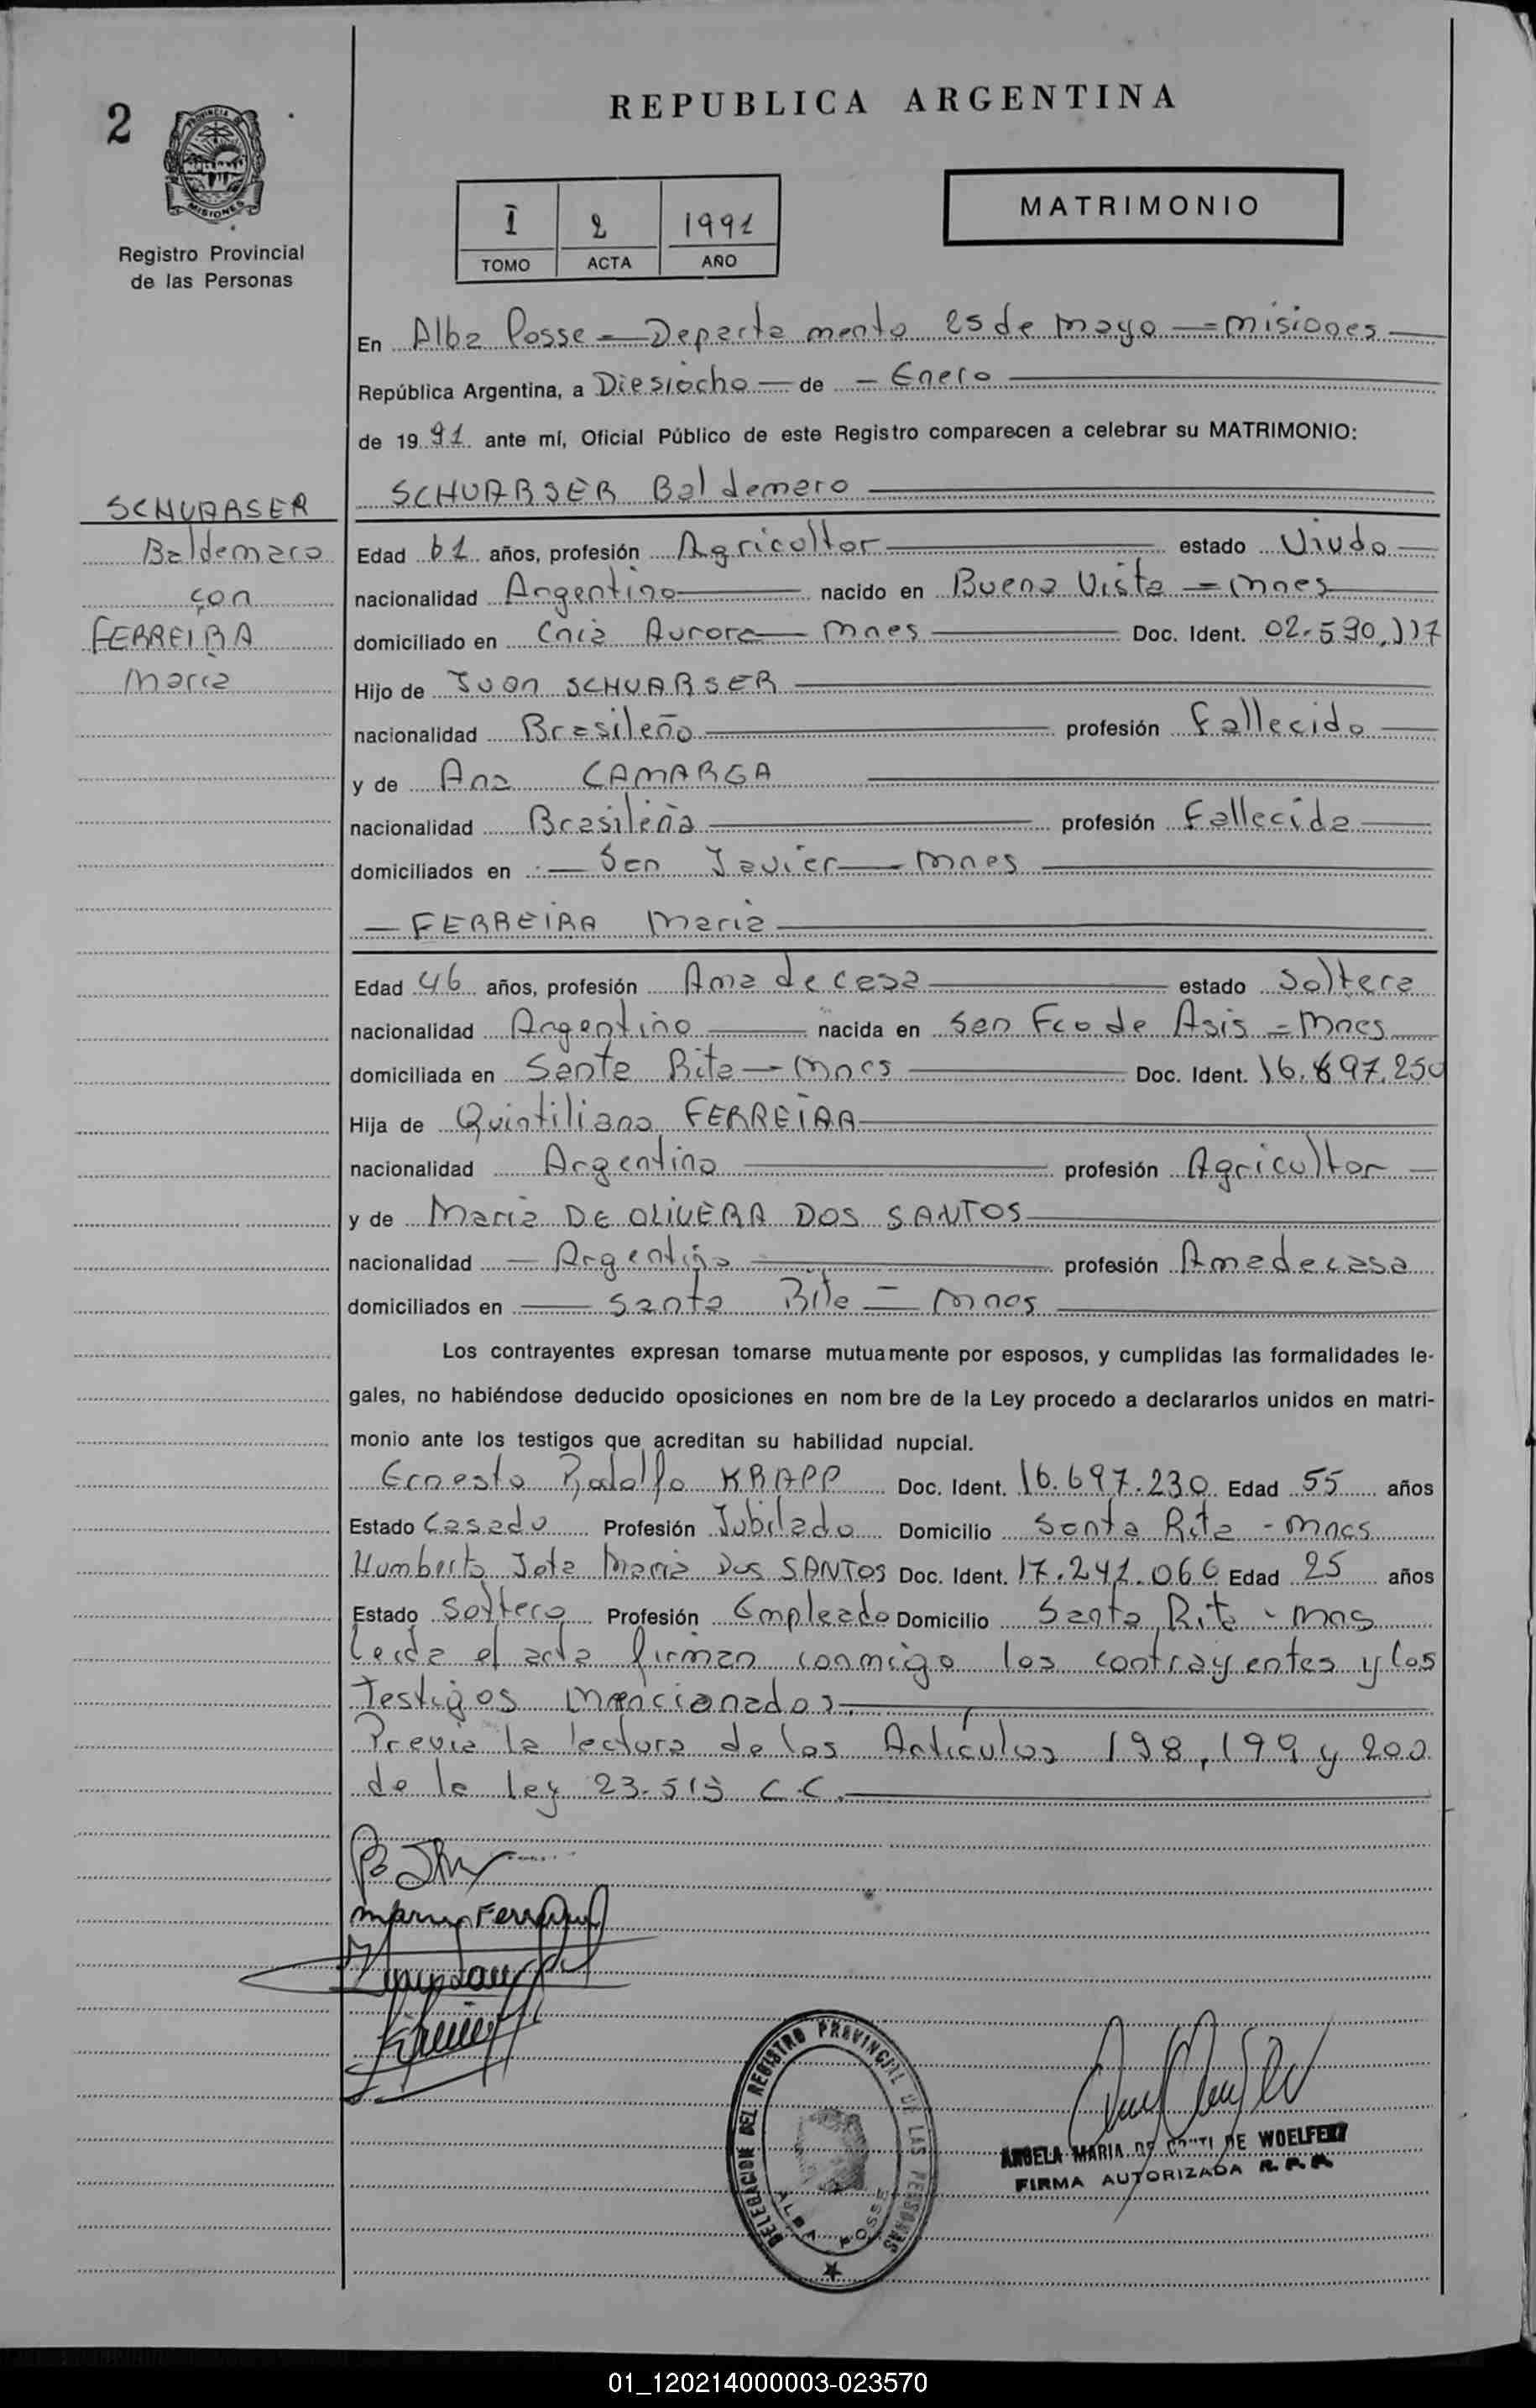 2
REPUBLICA ARGENTINA
PROVINCIA DE
MISIONES
Registro Provincial
de las Personas
I 2 1991
TOMO ACTA AÑO
MATRIMONIO
En Alba Posse = Departamento 25 de Mayo = Misiones
República Argentina, a Diesiocho de Enero
de 1991 ante mí, Oficial Público de este Registro comparecen a celebrar su MATRIMONIO:
SCHUARSER Baldemaro
con
FERREIRA
Maria
SCHUARSER Baldemero
Edad 61 años, profesión Agricoltor estado Viudo
nacionalidad Argentino nacido en Buena Vista = Mnes
domiciliado en Cnia Aurora Mnes Doc. Ident. 02.590.117
Hijo de Juan SCHUARSER
nacionalidad Brasileño profesión Fallecido
y de Ana CAMARGA
nacionalidad Brasileña profesión Fallecida
domiciliados en San Javier Mnes
FERREIRA Maria
Edad 46 años, profesión Ama de casa estado Soltera
nacionalidad Argentino nacida en San Fco de Asis = Mnes
domiciliada en Santa Rita - Mnes Doc. Ident. 16.697.250
Hija de Quintiliano FERREIRA
nacionalidad Argentino profesión Agricultor
y de Maria DE OLIVERA DOS SANTOS
nacionalidad Argentina profesión Ama de casa
domiciliados en Santa Rita = Mnes
Los contrayentes expresan tomarse mutuamente por esposos, y cumplidas las formalidades le-
gales, no habiéndose deducido oposiciones en nom bre de la Ley procedo a declararlos unidos en matri-
monio ante los testigos que acreditan su habilidad nupcial.
Ernesto Rodolfo KRAPP Doc. Ident. 16.697.230 Edad 55 años
Estado Casado Profesión Jubilado Domicilio Santa Rita - Mnes
Humberto Jota Maria Dos SANTOS Doc. Ident. 17.241.066 Edad 25 años
Estado Soltero Profesión Empleado Domicilio Santa Rita - Mns
Leida el acta firman conmigo los contrayentes y los
testigos mencionados.
Previa la lectura de los Articulos 198, 199 y 200
de la ley 23.515 C.C.
Maria Ferreira
DELEGACION DEL REGISTRO PROVINCIAL DE LAS PERSONAS
ALBA POSSE
ANGELA MARIA DE CONTI DE WOELFERT
FIRMA AUTORIZADA R.P.P.
01_120214000003-023570